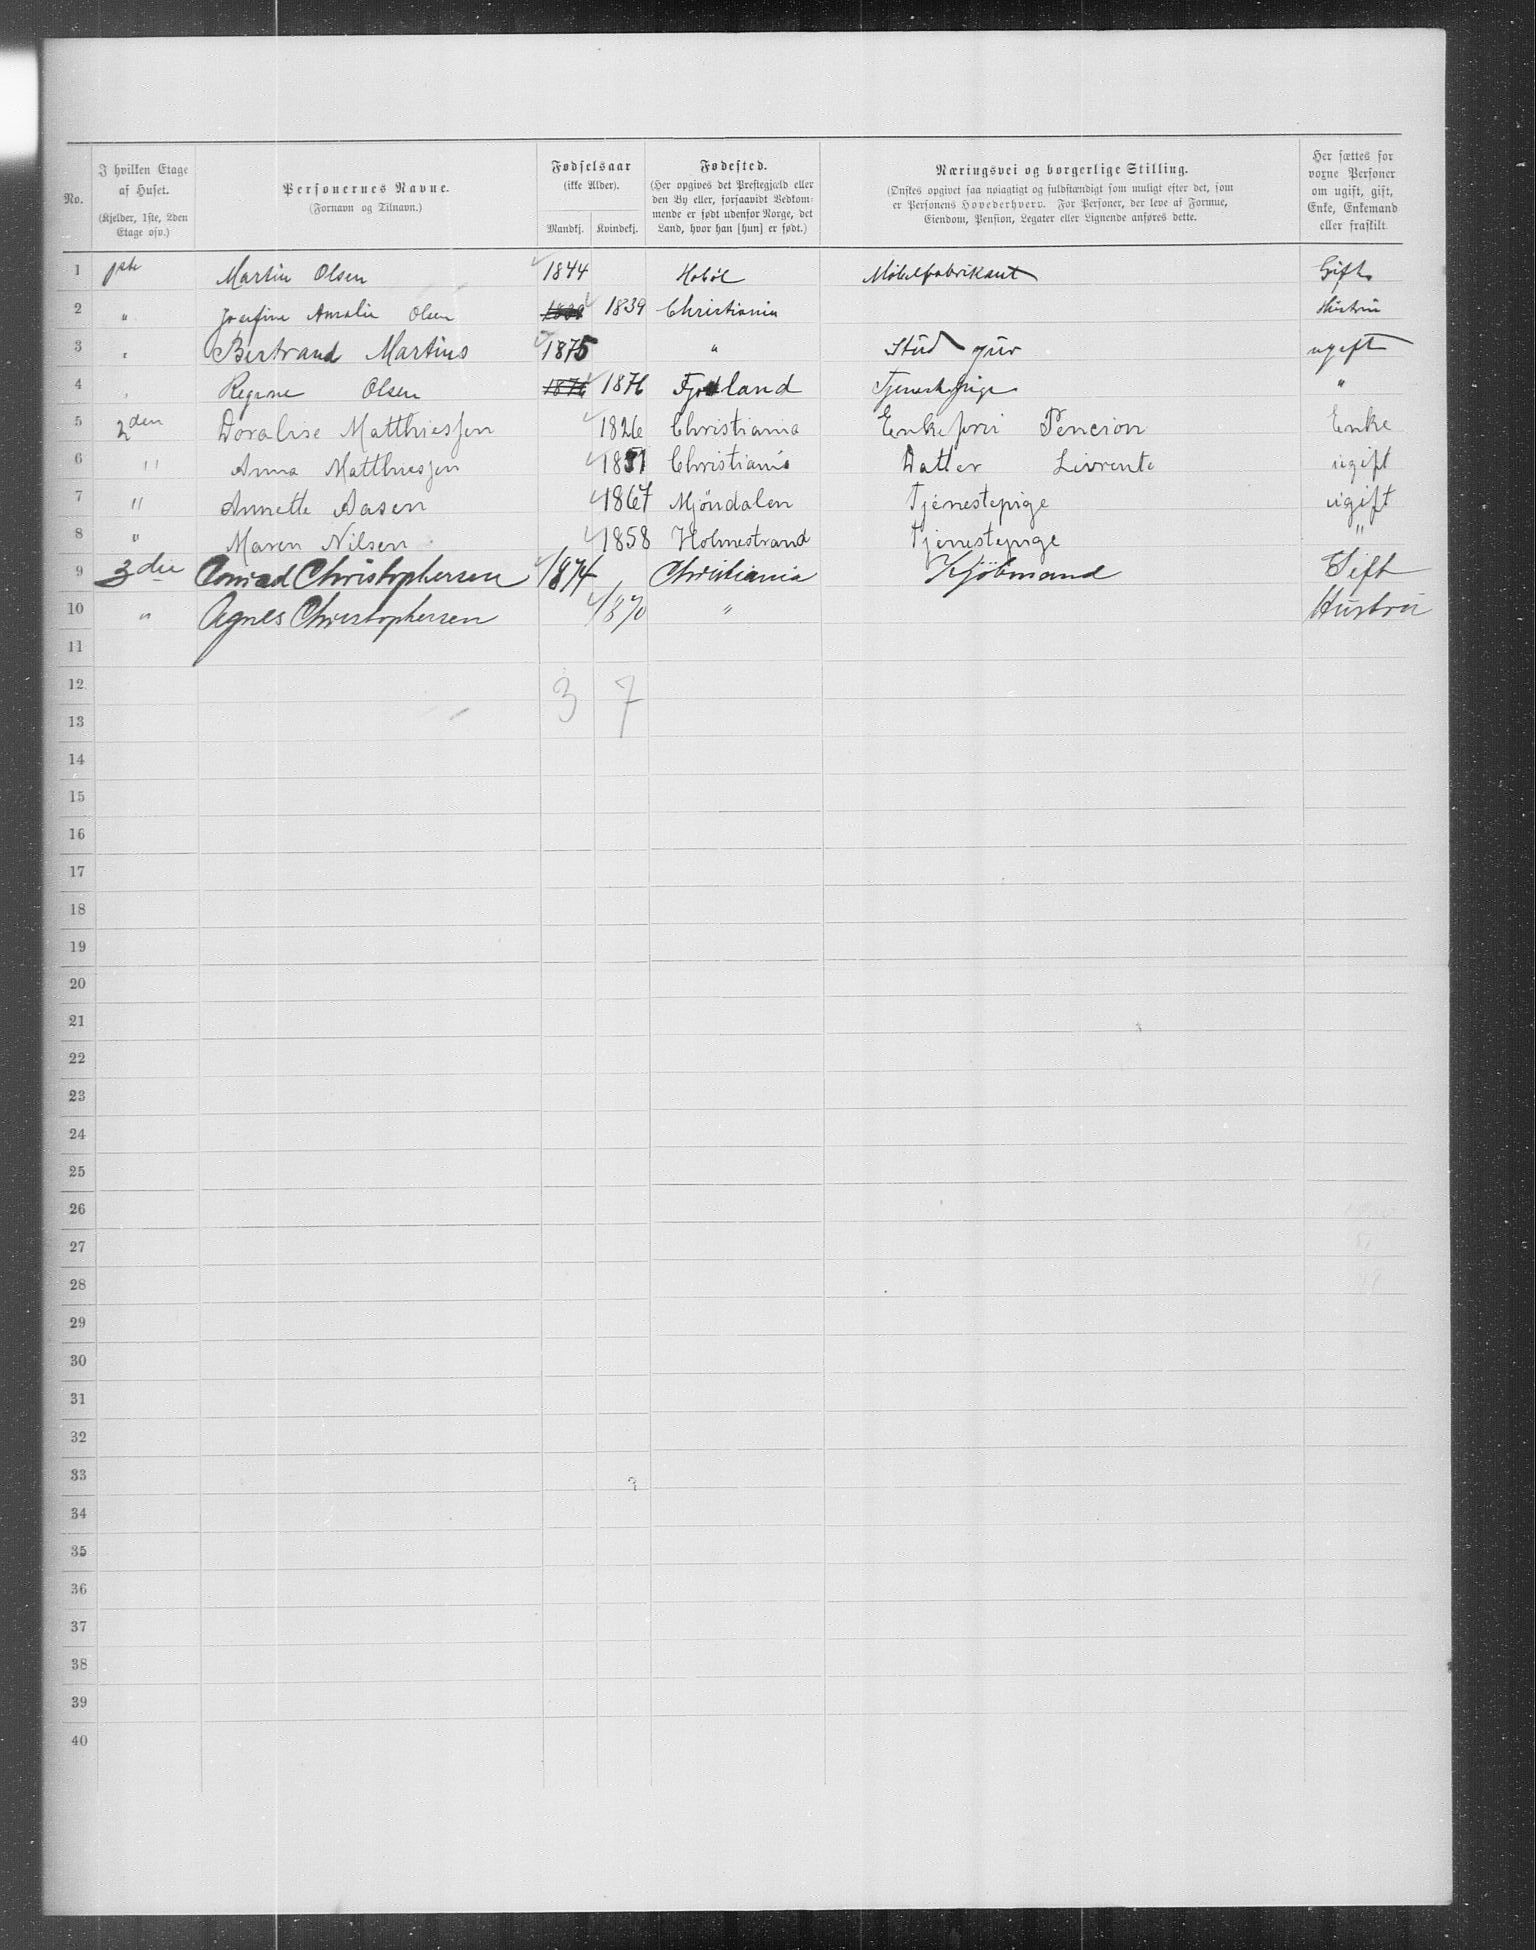 No.	I hvilken Etage af Huset. (Kjelder, 1ste, 2den Etage osv.)	Personernes Navne. (Fornavn og Tilnavn.)	Fødselsaar (ikke Alder). Mandkj. Kvindekj.	Fødested. (Her opgives det Prestegjæld eller den By eller, forsaavidt Vedkommende er født udenfor Norge, det Land, hvor han [hun] er født.)	Næringsvei og borgerlige Stilling. (Ønskes opgivet saa nøiagtigt og fuldstændigt som muligt efter det, som er Personens Hovederhverv. For Personer, der leve af Formue, Eiendom, Pension, Legater eller Lignende anføres dette.	Her sættes for voxne Personer om ugift, gift, Enke, Enkemand eller fraskilt.
1 1ste Martin Olsen 1844 Hobøl Møbelfabrikant Gift
2 " Josefine Amalie Olsen 1839 Christiania Hustru
3 " Bertrand Martius 1875 " Stud jur ugift
4 " Regine Olsen 1876 1876 Tjenestepige "
5 2den Doralise Matthiessen 1826 Christiania Enkefru Pencion Enke
6 " Anna Matthiessen 1851 Christiania Datter Livrente ugift
7 " Annette Aasen 1867 Mjöndalen Tjenestepige ugift
8 " Maren Nilsen 1858 Holmestrand Tjenestepige "
9 3die Conrad Christophersen 1874 Christiania Kjöbmand Gift
10 " Agnes Christophersen 1870 " Hustru
11
12 3 7
13
14
15
16
17
18
19
20
21
22
23
24
25
26
27
28
29
30
31
32
33
34
35
36
37
38
39
40